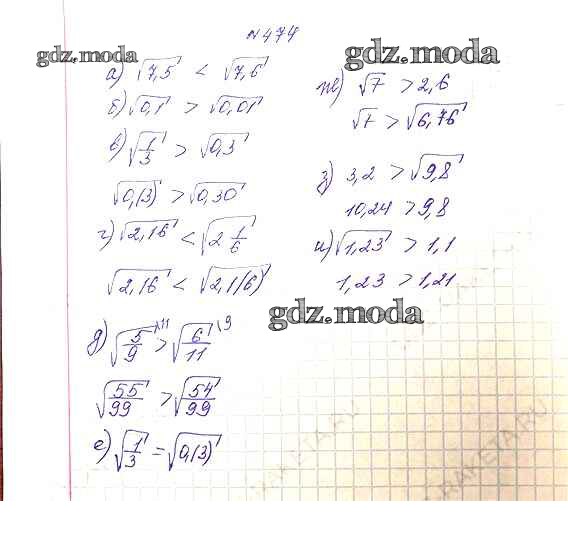 № 474
gdz.moda
gdz.moda
а) √7,5 < √7,6
б) √0,1 > √0,01
в) √1/3 > √0,3
√0,(3) > √0,30
г) √2,16 < √2 1/6
√2,16 < √2,1(6)
д) √5/9 \11 > √6/11 \9
√55/99 > √54/99
е) √1/3 = √0,(3)
ж) √7 > 2,6
√7 > √6,76
з) 3,2 > √9,8
10,24 > 9,8
и) √1,23 > 1,1
1,23 > 1,21
gdz.moda
RAKETA.RU
RAKETA.RU